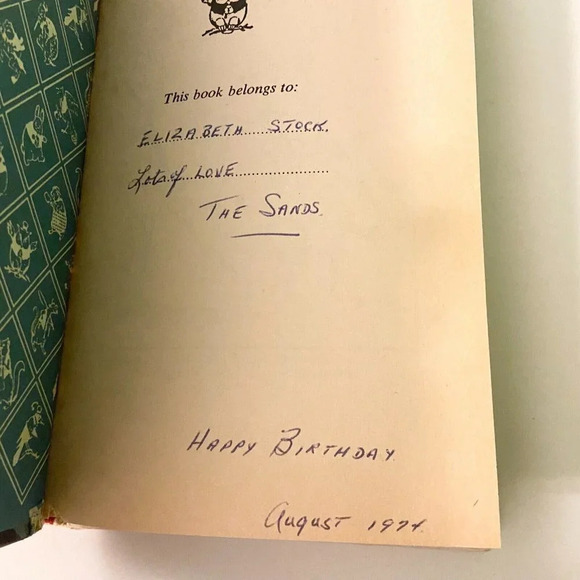 This book belongs to:
ELIZABETH STOCK.
Lots of LOVE
THE SANDS.
HAPPY BIRTHDAY
August 1974.